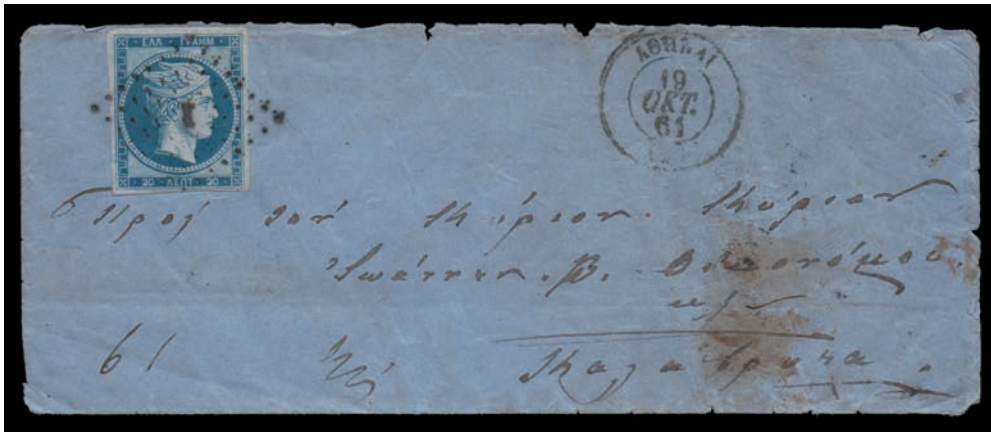 ΕΛΛ · ΓΡΑΜΜ
20 · ΛΕΠΤ · 20
ΑΘΗΝΑΙ
19
ΟΚΤ.
61
Πρὸς τὸν Κύριον Κύριον
Ἰωάννην. Β. Οἰκονόμου.
61 Εἰς Καλάβρυτα.